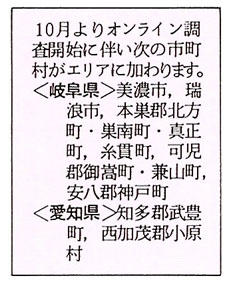 10月よりオンライン調
査開始に伴い次の市町
村がエリアに加わります。
＜岐阜県＞美濃市，瑞
浪市，本巣郡北方
町・巣南町・真正
町，糸貫町，可児
郡御嵩町・兼山町，
安八郡神戸町
＜愛知県＞知多郡武豊
町，西加茂郡小原
村